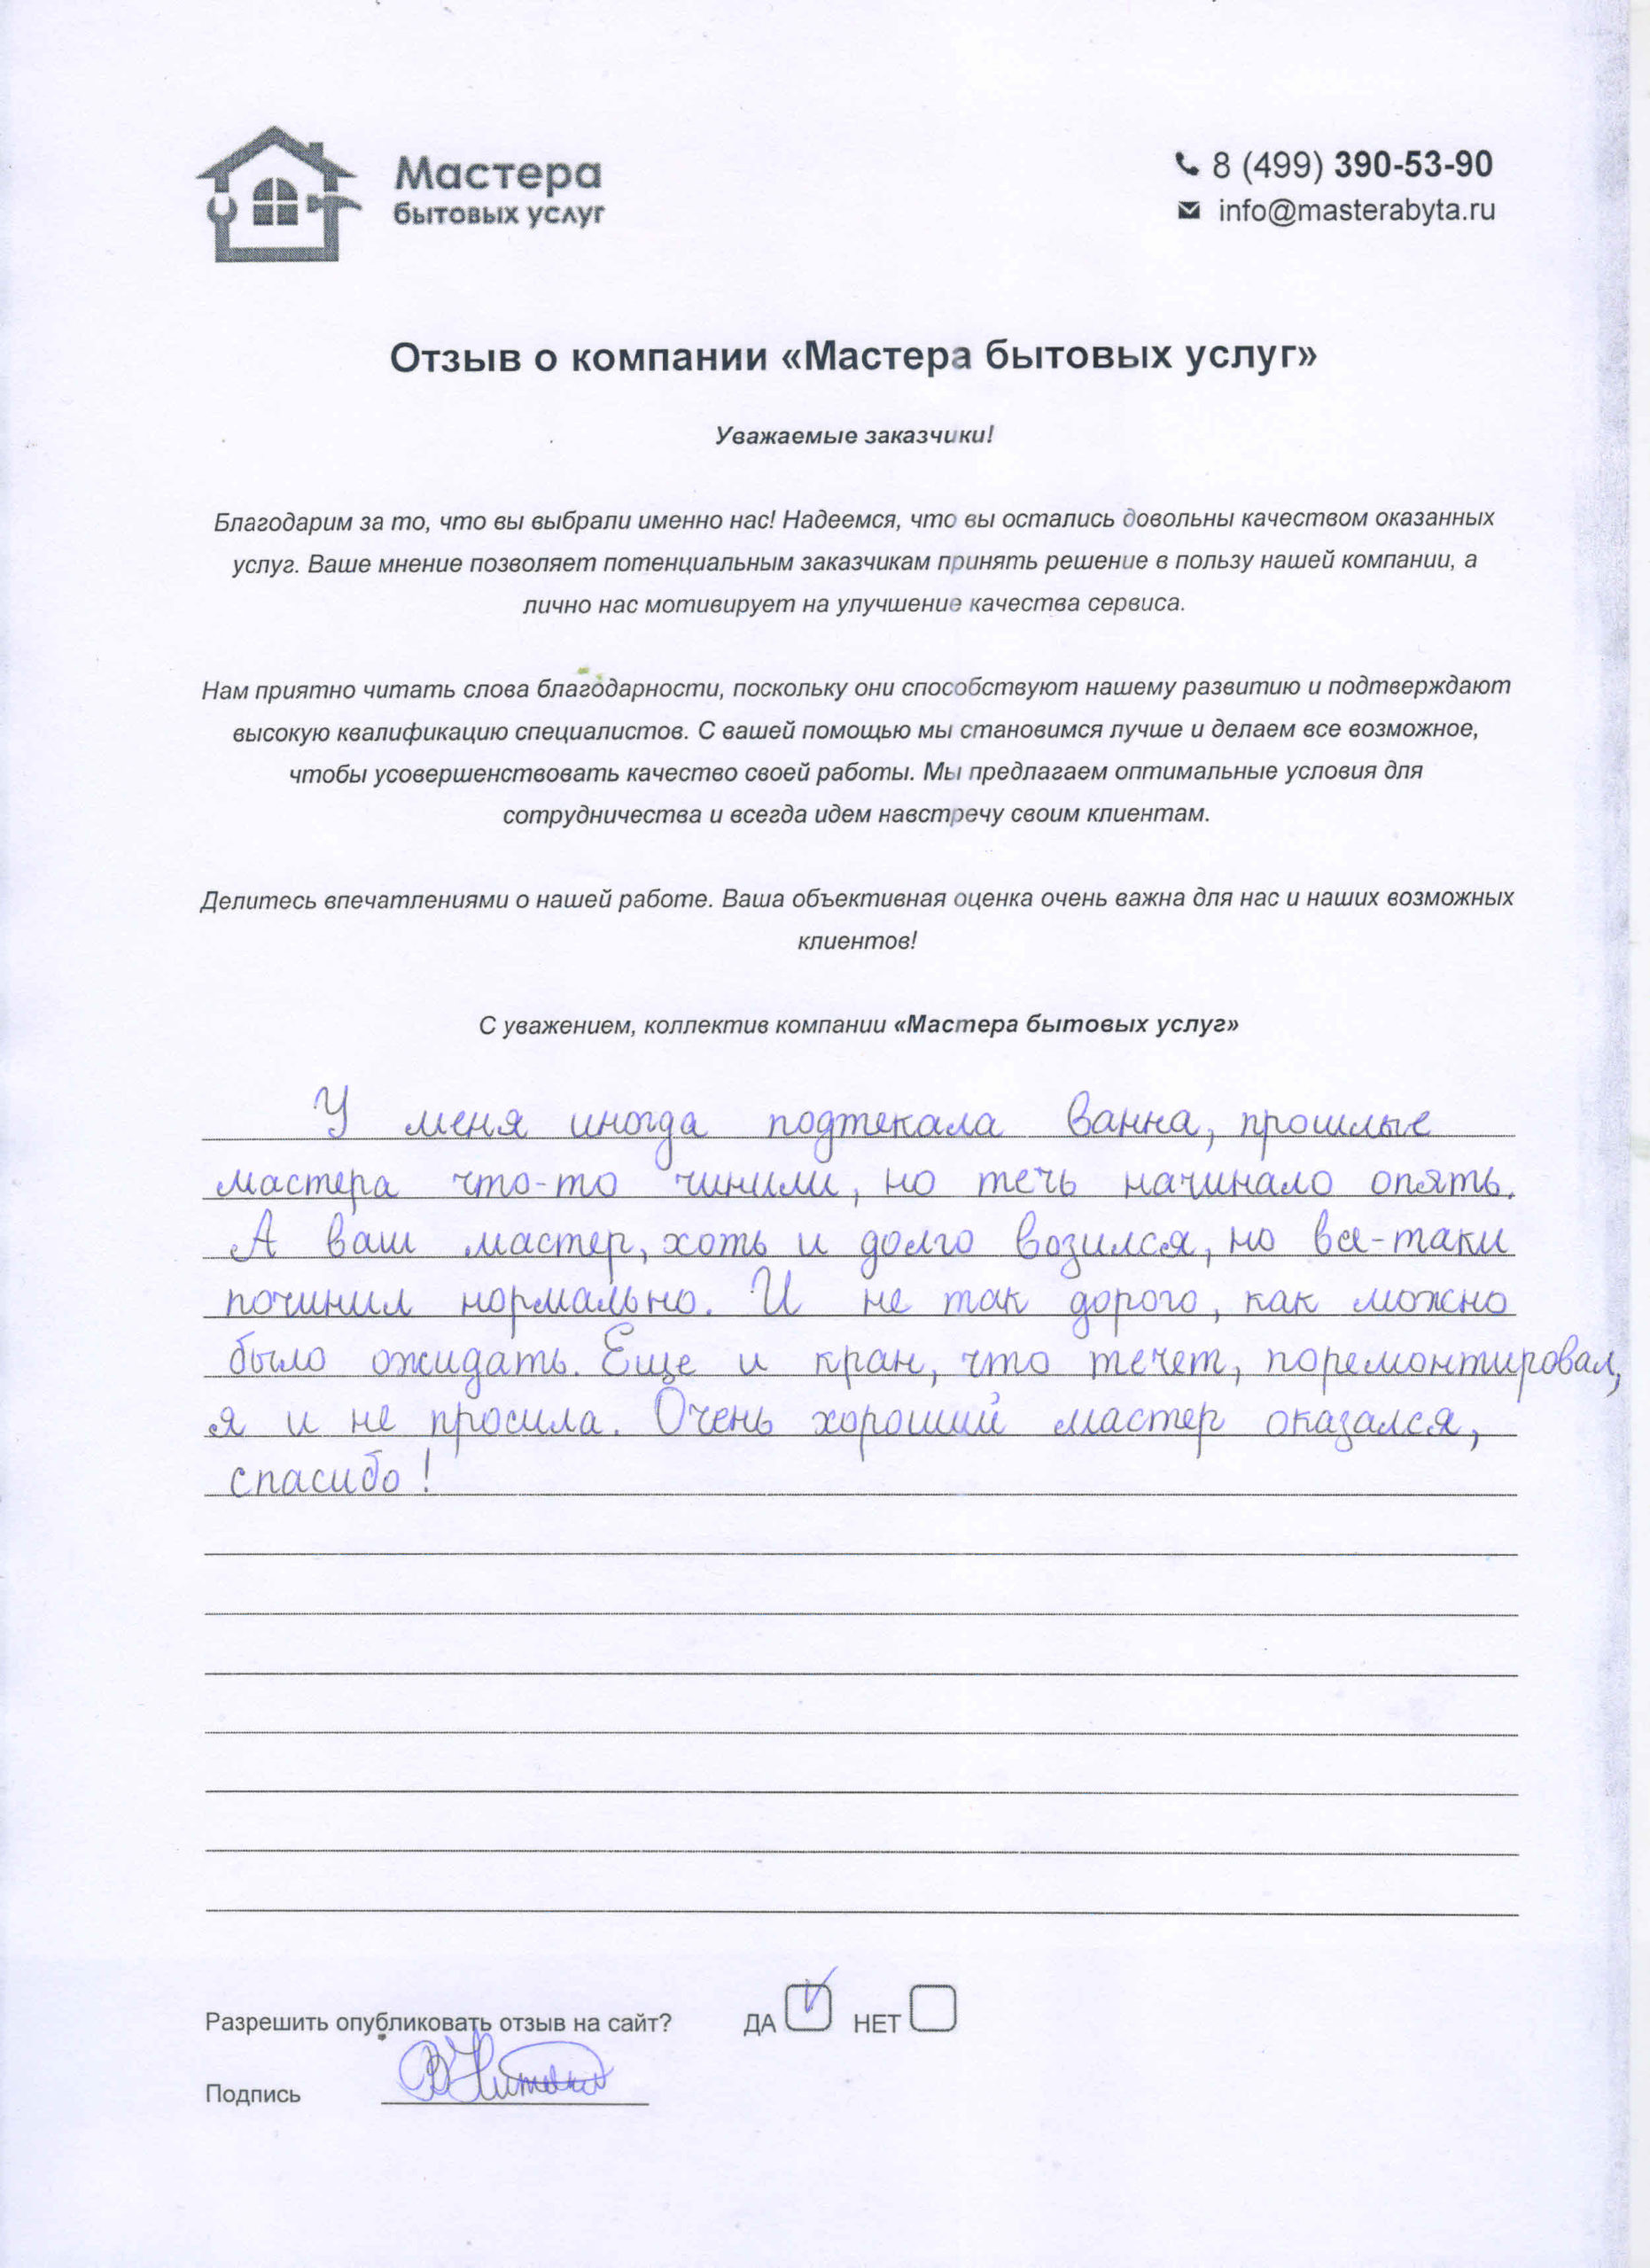 Мастера
бытовых услуг
8 (499) 390-53-90
info@masterabyta.ru
Отзыв о компании «Мастера бытовых услуг»
Уважаемые заказчики!
Благодарим за то, что вы выбрали именно нас! Надеемся, что вы остались довольны качеством оказанных
услуг. Ваше мнение позволяет потенциальным заказчикам принять решение в пользу нашей компании, а
лично нас мотивирует на улучшение качества сервиса.
Нам приятно читать слова благодарности, поскольку они способствуют нашему развитию и подтверждают
высокую квалификацию специалистов. С вашей помощью мы становимся лучше и делаем все возможное,
чтобы усовершенствовать качество своей работы. Мы предлагаем оптимальные условия для
сотрудничества и всегда идем навстречу своим клиентам.
Делитесь впечатлениями о нашей работе. Ваша объективная оценка очень важна для нас и наших возможных
клиентов!
С уважением, коллектив компании «Мастера бытовых услуг»
У меня иногда подтекала ванна, прошлые
мастера что-то чинили, но течь начинало опять.
А ваш мастер, хоть и долго возился, но все-таки
починил нормально. И не так дорого, как можно
было ожидать. Еще и кран, что течет, поремонтировал,
я и не просила. Очень хороший мастер оказался,
спасибо!
Разрешить опубликовать отзыв на сайт? ДА НЕТ
Подпись